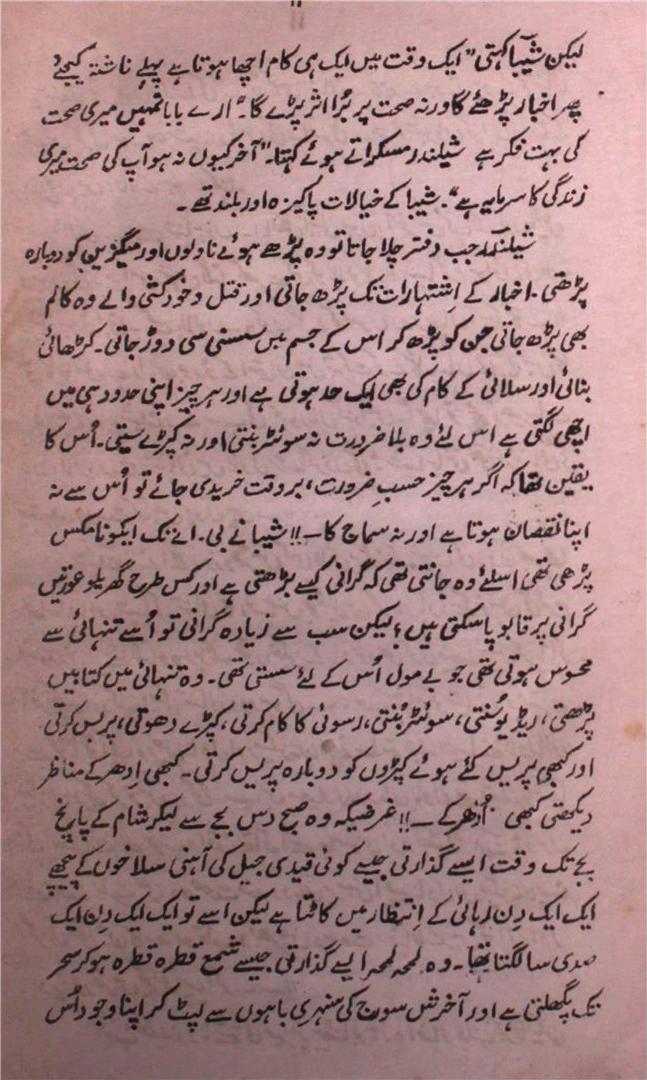 ۱۱
لیکن شیبا کہتی "ایک وقت میں ایک ہی کام اچھا ہوتا ہے پہلے ناشتہ کیجئے
پھر اخبار پڑھئے گا ورنہ صحت پر بُرا اثر پڑے گا۔" ارے بابا تمہیں میری صحت
کی بہت فکر ہے شیلندر مسکراتے ہوئے کہتا۔ "آخر کیوں نہ ہو آپ کی صحت میری
زندگی کا سرمایہ ہے"۔ شیبا کے خیالات پاکیزہ اور بلند تھے۔
شیلندر جب دفتر چلا جاتا تو وہ پڑھے ہوئے ناولوں اور میگزین کو دوبارہ
پڑھتی۔ اخبار کے اِشتہارات تک پڑھ جاتی اور قتل و خودکشی والے وہ کالم
بھی پڑھ جاتی جن کو پڑھ کر اس کے جسم میں سنسنی سی دوڑ جاتی۔ کڑھائی
بنائی اور سلائی کے کام کی بھی ایک حد ہوتی ہے اور ہر چیز اپنی حدود ہی میں
اچھی لگتی ہے اس لئے وہ بلا ضرورت نہ سوئٹر بنتی اور نہ کپڑے سیتی۔ اُس کا
یقین تھا کہ اگر ہر چیز حسبِ ضرورت، بروقت خریدی جائے تو اُس سے نہ
اپنا نقصان ہوتا ہے اور نہ سماج کا ــ!! شیبا نے بی۔ اے تک ایکونامکس
پڑھی تھی اسلئے وہ جانتی تھی کہ گرانی کیسے بڑھتی ہے اور کس طرح گھریلو عورتیں
گرانی پر قابو پا سکتی ہیں؛ لیکن سب سے زیادہ گرانی تو اُسے تنہائی سے
محسوس ہوتی تھی جو بے مول اُس کے لئے سستی تھی۔ وہ تنہائی میں کتابیں
پڑھتی، ریڈیو سُنتی، سوئٹر بُنتی، رسوئی کا کام کرتی، کپڑے دھوتی، پریس کرتی
اور کبھی پریس کئے ہوئے کپڑوں کو دوبارہ پریس کرتی۔ کبھی اِدھر کے مناظر
دیکھتی کبھی اُدھر کے ــ!! غرضیکہ وہ صبح دس بجے سے لیکر شام کے پانچ
بجے تک وقت ایسے گذارتی جیسے کوئی قیدی جیل کی آہنی سلاخوں کے پیچھے
ایک ایک دِن رہائی کے اِنتظار میں کاٹتا ہے لیکن اسے تو ایک ایک دِن ایک
صدی سا لگتا تھا۔ وہ لمحہ لمحہ ایسے گذارتی جیسے شمع قطرہ قطرہ ہو کر سحر
تک پگھلتی ہے اور آخرش سورج کی سنہری باہوں سے لپٹ کر اپنا وجود اُس